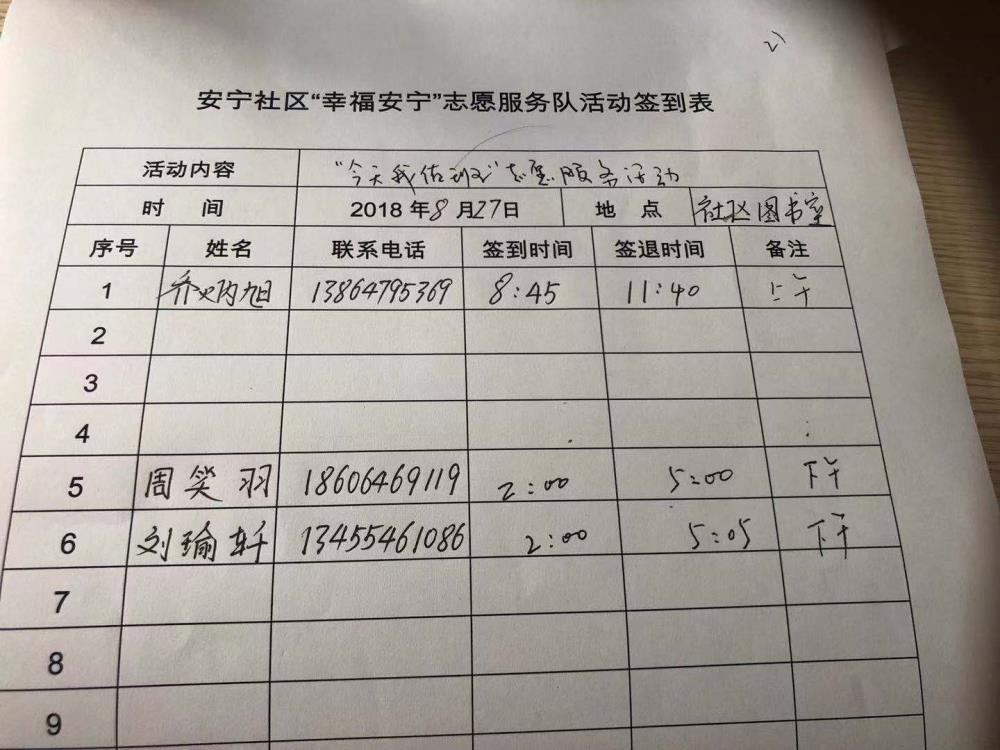 2)
安宁社区“幸福安宁”志愿服务队活动签到表
活动内容 “今天我值班”志愿服务活动
时 间 2018年8月27日 地 点 社区图书室
序号 姓名 联系电话 签到时间 签退时间 备注
1 乔炳旭 13864795369 8:45 11:40 上午
2
3
4
5 周笑羽 18606469119 2:00 5:00 下午
6 刘瑜轩 13455461086 2:00 5:05 下午
7
8
9